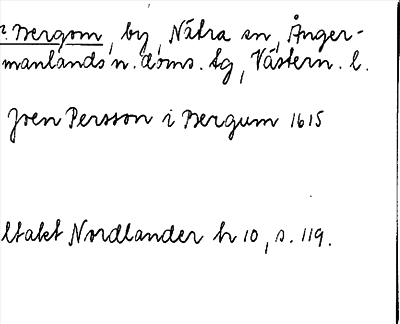 Bergom, by, Nätra sn, Ånger-
manlands n. doms. tg, Västern. l.
Joen Persson i Bergum 1615
ltakt Nordlander h 10, s. 119.